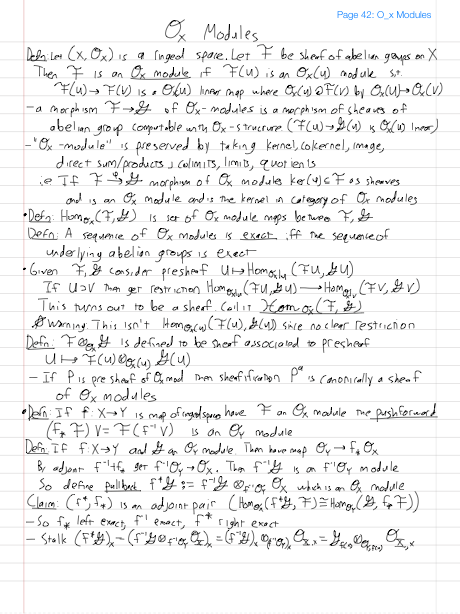 Page 42: O_x Modules
O_X Modules
Defn: Let (X, O_X) is a ringed space. Let F be sheaf of abelian groups on X
Then F is an O_X module if F(U) is an O_X(U) module s.t.
F(U) → F(V) is a O_X(U) linear map where O_X(U) ↻ F(V) by O_X(U) → O_X(V)
- a morphism F → G of O_X-modules is a morphism of sheaves of
abelian group compatable with O_X-structure (F(U) → G(U) is O_X(U) linear)
- "O_X-module" is preserved by taking kernel, cokernel, image,
direct sum/products, colimits, limits, quotients
i.e If F →^φ G morphism of O_X modules ker(φ) ⊆ F as sheaves
and is an O_X module and is the kernel in category of O_X modules
• Defn: Hom_{O_X}(F, G) is set of O_X module maps between F, G
Defn: A sequence of O_X modules is exact iff the sequence of
underlying abelian groups is exact
• Given F, G consider presheaf U ↦ Hom_{O_X|U}(F|U, G|U)
If U ⊃ V then get restriction Hom_{O_X|U}(F|U, G|U) → Hom_{O_X|V}(F|V, G|V)
This turns out to be a sheaf. Call it Hom_{O_X}(F, G)
Warning: This isn't Hom_{O_X(U)}(F(U), G(U)) since no clear restriction
Defn: F ⊗_{O_X} G is defined to be sheaf associated to presheaf
U ↦ F(U) ⊗_{O_X(U)} G(U)
- If P is presheaf of O_X mod then sheafification P^a is canonically a sheaf
of O_X modules
• Defn: If f: X → Y is map of ringed spaces have F an O_X module the pushforward
(f_* F) V = F(f^{-1} V) is an O_Y module
Defn: If f: X → Y and G an O_Y module. Then have map O_Y → f_* O_X
By adjoint f^{-1} f_* get f^{-1} O_Y → O_X. Then f^{-1} G is an f^{-1} O_Y module
So define pullback f^* G := f^{-1} G ⊗_{f^{-1} O_Y} O_X which is an O_X module
Claim: (f^*, f_*) is an adjoint pair (Hom_{O_X}(f^* G, F) ≅ Hom_{O_Y}(G, f_* F))
- So f_* left exact, f^{-1} exact, f^* right exact
- Stalk (f^* G)_x = (f^{-1} G ⊗_{f^{-1} O_Y} O_X)_x = (f^{-1} G)_x ⊗_{(f^{-1} O_Y)_x} O_{X,x} = G_{f(x)} ⊗_{O_{Y,f(x)}} O_{X,x}